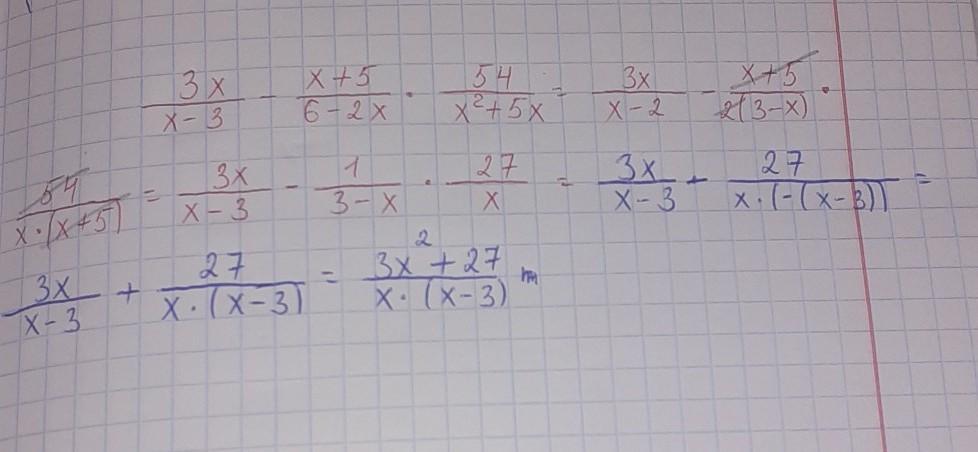 3x/(x-3) - (x+5)/(6-2x) · 54/(x²+5x) = 3x/(x-2) - (x+5)/(2(3-x)) ·
54/(x·(x+5)) = 3x/(x-3) - 1/(3-x) · 27/x = 3x/(x-3) - 27/(x·(-(x-3))) =
3x/(x-3) + 27/(x·(x-3)) = (3x²+27)/(x·(x-3))